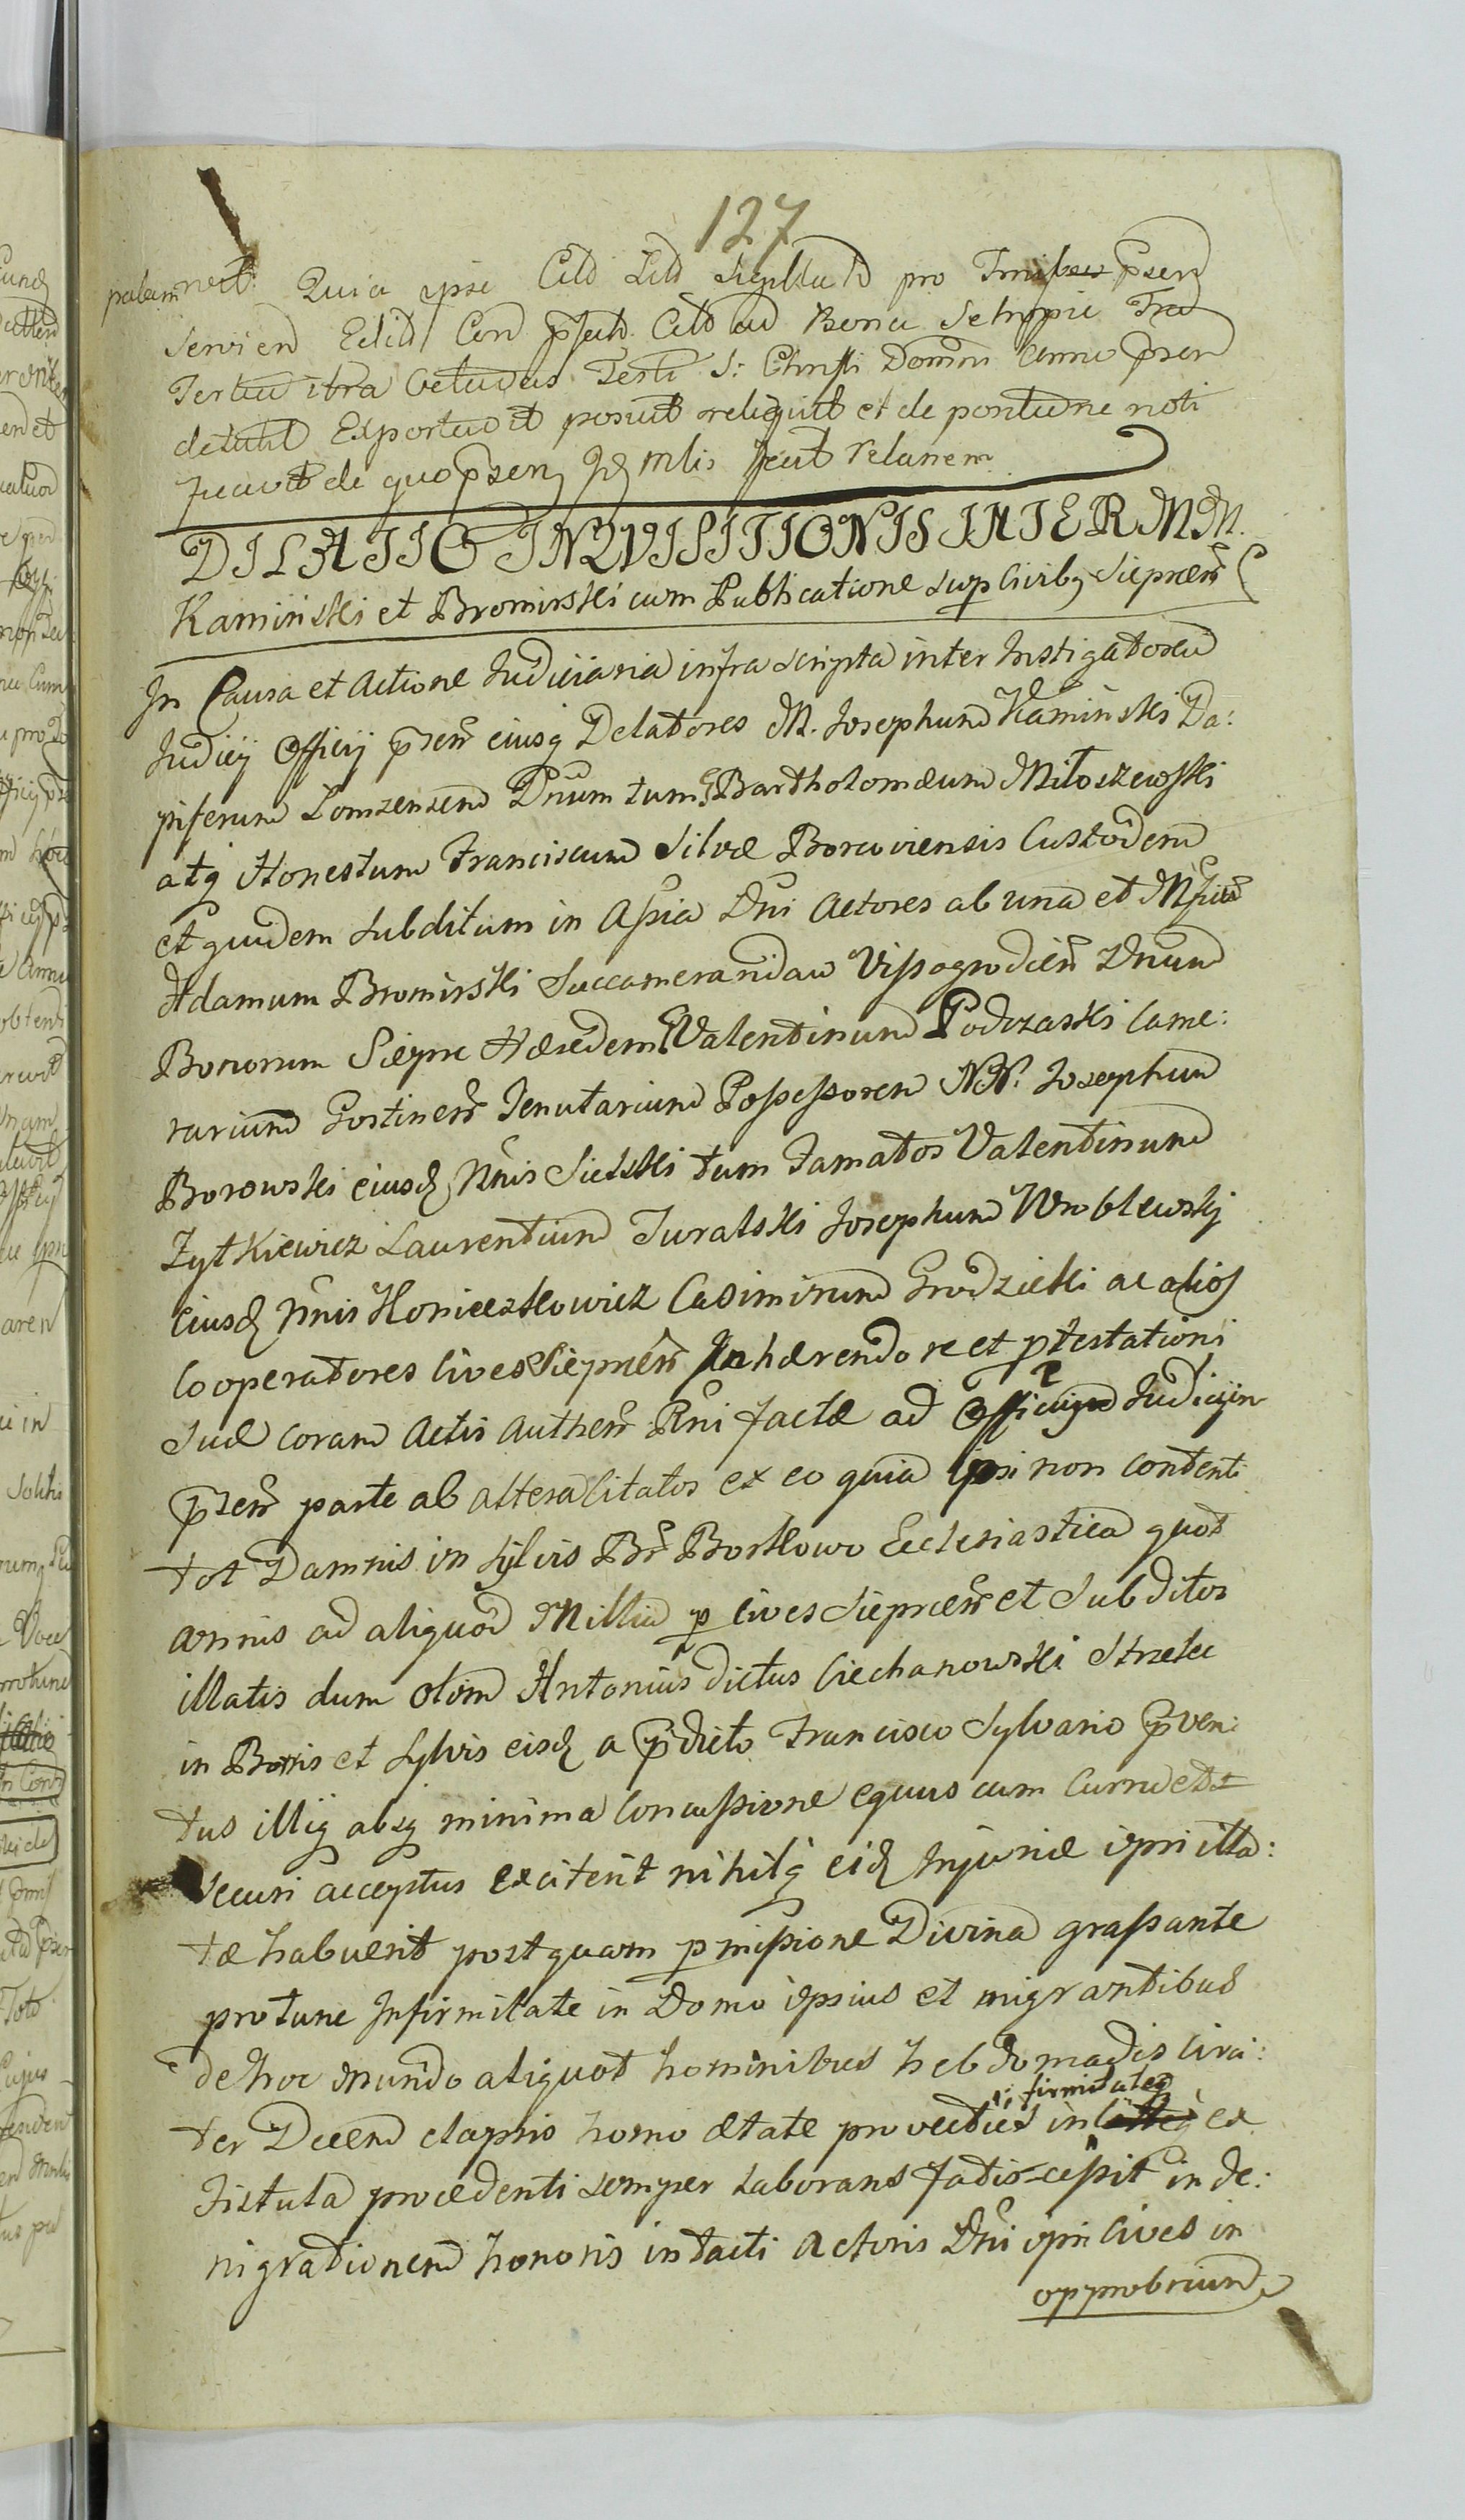 127
palam nect: Quia ipse Citd Litd pro psend
Serviend Edid Con Citd ad Bona Setropie Tred
Tertia Testi S: Christi Domini Anno psen
detulit Exportavit posuit reliquit et de positione noti
ficavit de quo psenq mlis fecit relanem
DILATIO INQVISITIONIS INTER MM.
Kaminski et Bromirski cum Publicatione sup Civibq Sieprcen
In Causa et Actione Judiciaria infra scripta inter Instigatorem
Judicij Officij psen eiusq Delatores M. Josephum Kaminski Da:
piferum Lomzensem Dnum tum G Bartholomæum Miłoszewski
atq Honestum Franciscum Silvæ Borcoviensis Custodem
et quidem Subditum in Assia Dni Actores ab una et Mfium
Adamum Bromirski Succamerandam Vissogrodien Dnum
Bonorum Sieprc Hæredem G Valentinum Podczaski Came:
rarium Gostinen Tenutarium Possessorem NN. Josephum
Borowski eiusd Nnis Sielski tum Famatos Valentinum
Zytkiewicz Laurentium Turalski Josephum Wroblewskj
Eiusd Nnis Konieczkowicz Casimirum Grodzicki ac alios
Cooperatores Cives Sieprcen Inhærendo re et ptestationi
Suæ coram Actis Authen Rni factæ ad Officium Judicijin
psen parte ab altera Citatos ex eo quia ipsi non contenti
tot Damnis in Sylvis Br Borkowo Ecclesiastica quot
annis ad aliquod Millia p Cives Sieprcen et Subditos
illatis dum olim Antonius dictus Ciechanowski Strzelec
in Bonis et Sylvis eisd a pdicto Francisco Sylvano pven:
tus illiq absq minima Concussione equus cum Curru et
Securi acceptus excitent nihilq eid Injuriæ ipsi illa:
tæ habuerit postquam pmissione Divina grassante
protunc Infirmitate in Domo ipsius et migrantibus
de hoc mundo aliquot hominibus hebdomadis Circi:
ter Decem elapsis homo ætate provectus in firmitate ex
Fistula procedenti semper laborans fatis cessit in de:
nigrationem honoris intacti Actoris Dni ipsi Cives in
opprobrium